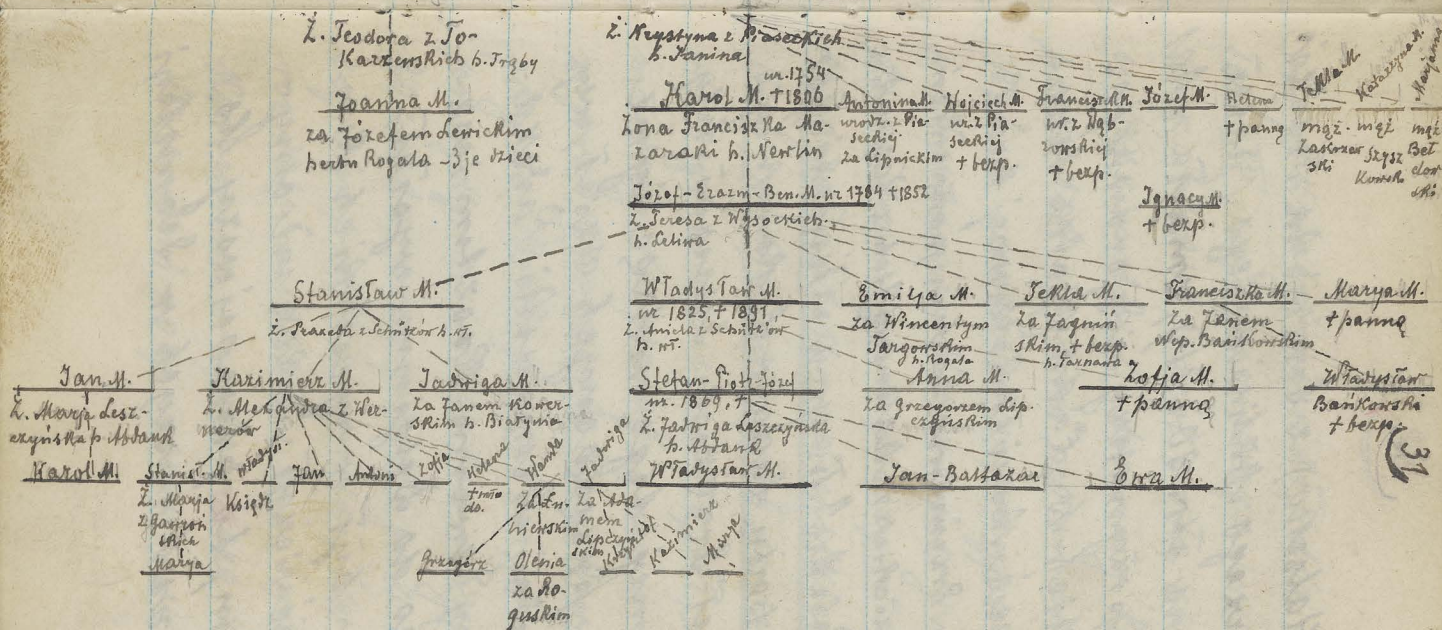 Ż. Teodora z To-
karzewskich h. Trąby
Joanna M.
za Józefem Lewickim
herbu Rogala - 3je dzieci
Ż. Krystyna z Piaseckich
h. Janina
ur. 1754
Karol M. † 1806
Żona Franciszka Ma-
zaraki h. Newlin
Antonina M.
urodz. z Pia-
seckiej
za Lipnickim
Wojciech M.
ur. z Pia-
seckiej
† bezp.
Franciszek M.
ur. z Dąb-
rowskiej
† bezp.
Józef M.
Helena
† panną
Tekla M.
mąż
Zaskrzew
ski
Katarzyna M.
mąż
Szysz
kowsk
Marjanna
mąż
Beł
dow
ski
Józef-Erazm-Ben. M. ur 1784 † 1852
Ż. Teresa z Wysockich
h. Leliwa
Ignacy M.
† bezp.
Stanisław M.
Ż. Prazeda z Schützów h. wł.
Władysław M.
ur 1825, † 1891
Ż. Aniela z Schützów
h. wł.
Emilja M.
za Wincentym
Targowskim
h. Rogala
Tekla M.
za Jagniń
skim, † bezp.
h. Tarnawa
Franciszka M.
za Janem
Nep. Bańkowskim
Marya M.
† panną
Jan M.
Ż. Marja Lesz-
czyńska h. Abdank
Kazimierz M.
Ż. Aleksandra z Wer-
nerów
Jadwiga M.
za Janem Kower-
skim h. Białynia
Stefan-Piotr-Józef
ur. 1869, †
Ż. Jadwiga Leszczyńska
h. Abdank
Anna M.
za Grzegorzem Lip-
czyńskim
Zofja M.
† panną
Władysław
Bańkowski
† bezp.
31
Karol M.
Stanisł. M.
Ż. Marja
z Gawroń
skich
Marya
Władysł.
Ksiądz
Jan
Antoni
Zofja
Helena
† mło
do.
Wanda
za Łu-
niewskim
Grzegórz
Olenia
za Ro-
guskim
Jadwiga
za Ada-
mem
Lipczyń
skim
Krzysztof
Kazimierz
Marja
Władysław M.
Jan-Baltazar
Ewa M.